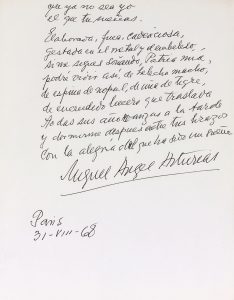 que ya no sea yo
el que tú sueñas.
Elaborada, fina, cadenciosa,
gestada en el metal y el embeleso,
si me sigues soñando, Patria mía,
podré vivir así, de helecho macho,
de espuma de nopal, de uña de tigre,
de encendido lucero que traslada
todas sus a la tarde
y dormirme después entre tus brazos
con la alegría del que ha sido un
Miguel Angel Asturias
Paris
31-VIII-68